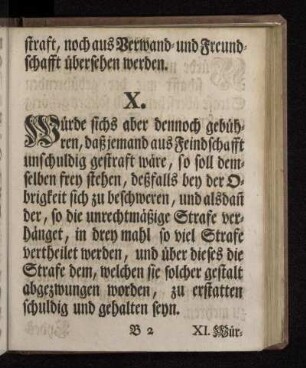 straft, noch aus Verwand- und Freund-
schafft übersehen werden.
X.
Würde sichs aber dennoch gebüh-
ren, daß jemand aus Feindschafft
unschuldig gestraft wäre, so soll dem-
selben frey stehen, deßfalls bey der O-
brigkeit sich zu beschweren, und alsdañ
der, so die unrechtmäßige Strafe ver-
hänget, in drey mahl so viel Strafe
vertheilet werden, und über dieses die
Strafe dem, welchen sie solcher gestalt
abgezwungen worden, zu erstatten
schuldig und gehalten seyn.
B 2 XI. Wür-